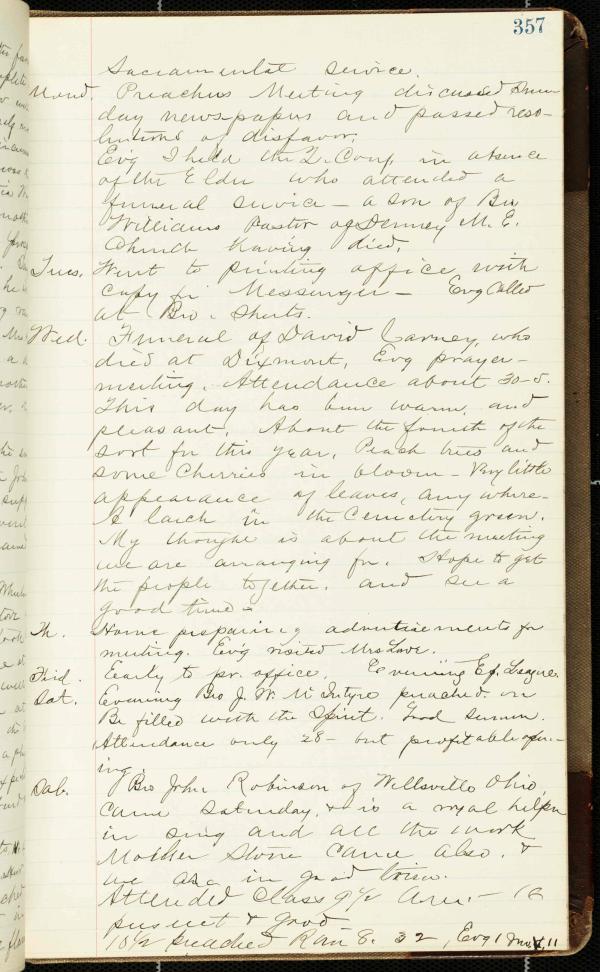 357
Sacramental service.
Mond. Preachers Meeting discussed Sun
day newspapers and passed reso-
lutions of disfavor.
Evg I held the Q. Conf. in absence
of the Elder who attended a
funeral service - a son of Bro
Williams Pastor of Denney M. E.
Church having died.
Tues. Went to printing office with
copy for Messenger - Evg Called
at Bro. Shutts.
Wed. Funeral of David Carney, who
died at Dixmont, Evg prayer-
meeting. Attendance about 30-5.
This day has been warm and
pleasant. About the fourth of the
sort for this year. Peach trees and
some Cherries in bloom - Very little
appearance of leaves, any where-
A larch in the Cemetery green.
My thought is about the meeting
we are arranging for. Hope to get
the people together. and see a
good time -
Th. Home preparing advertisements for
meeting. Evg visited Mrs Love.
Frid. Early to pr. office. Evening Ep. League.
Sat. Evening Bro J. W. McIntyre preached. on
Be filled with the Spirit. Good sermon.
Attendance only 28 - but profitable open-
ing.
Sab. Bro John Robinson of Wellsville Ohio,
came Saturday, & is a royal helper
in sing and all the work
Mother Stone came also. &
we are in good
Attended Class 9½ - 16
present & good
10½ preached Rom 8. 32, Evg